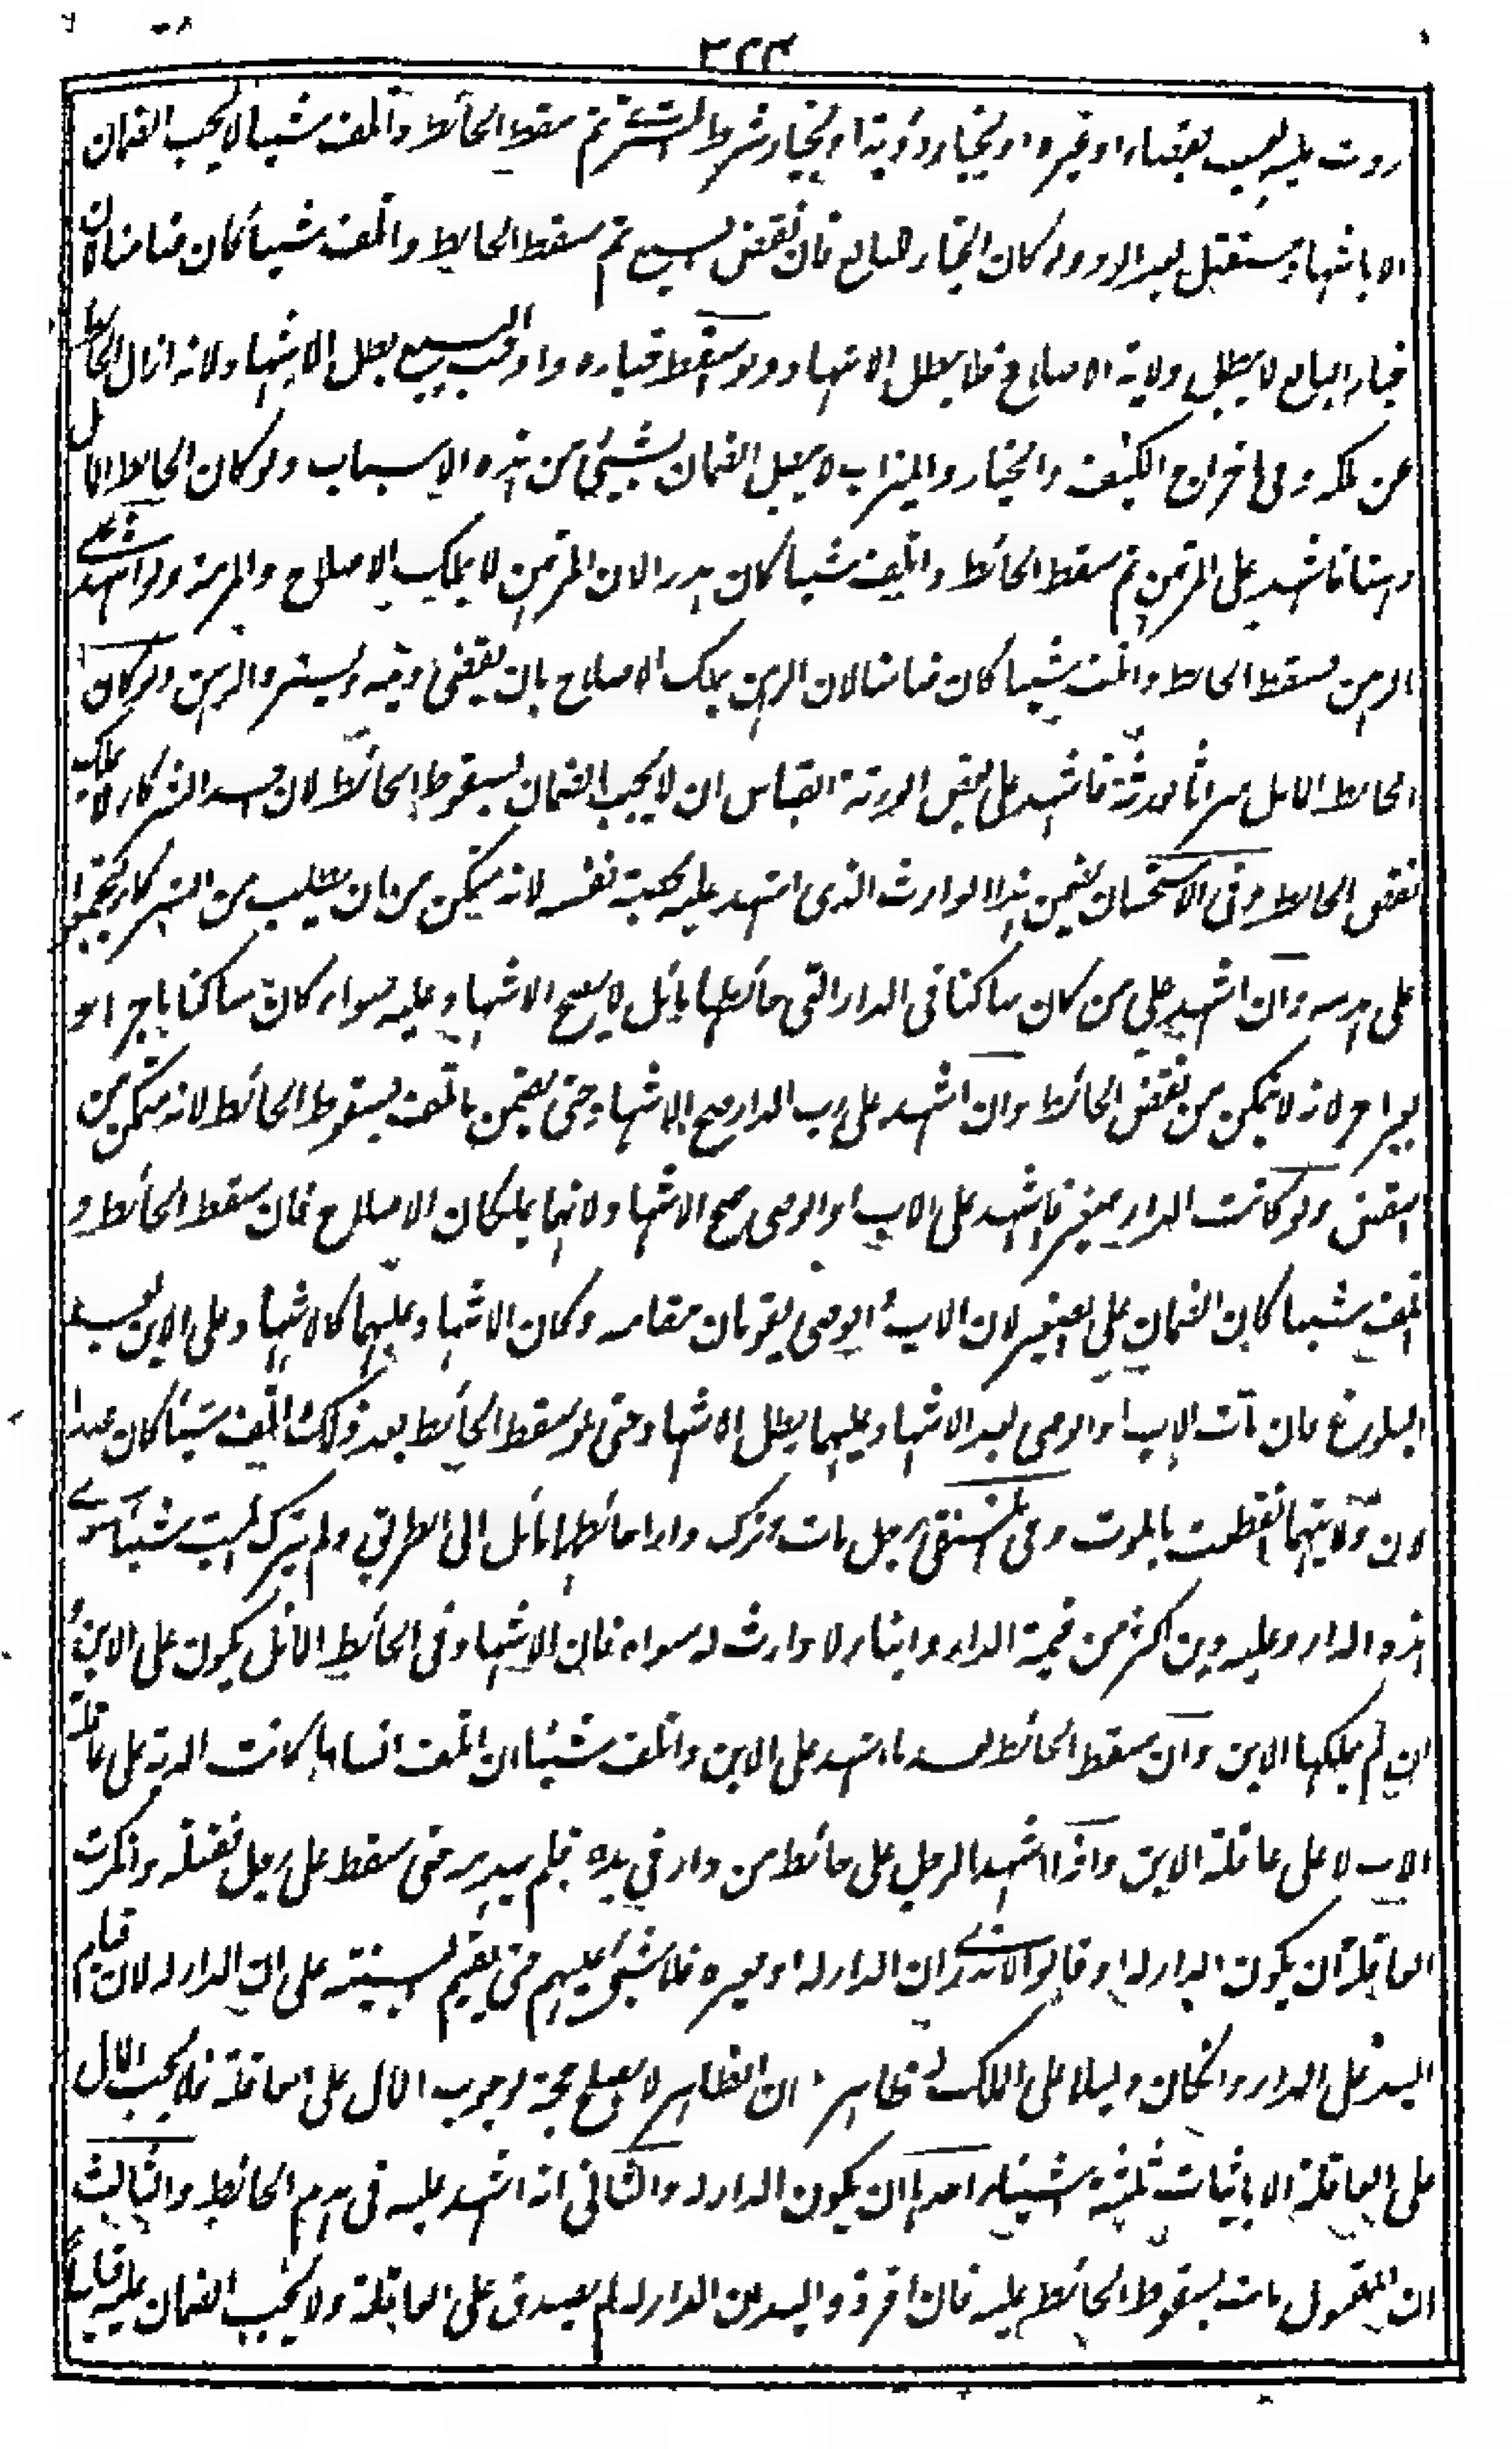 ٣٢٣
ردت عليه بعيب بقضاء او غيره او بخيار رؤية او بخيار شرط للمشترى ثم سقط الحائط واتلف شيئا لا يجب الضمان
الا باشهاد مستقبل بعد الرد ولو كان الخيار للبائع فان نقض البيع ثم سقط الحايط واتلف شيئا كان ضامنا لان
خيار البايع لا يبطل ولاية الاصلاح فلا يبطل الاشهاد ولو اسقط خياره واوجب البيع بطل الاشهاد لانه ازال الحائط
عن ملكه وفى اخراج الكنيف والميزاب لا يبطل الضمان بشيئ من هذه الاسباب ولو كان الحايط المائل
رهنا فاشهد على المرتهن ثم سقط الحائط واتلف شيئا كان هدرا لان المرتهن لا يملك الاصلاح والمرمة ولو اشهد على
الراهن فسقط الحائط واتلف شيئا كان ضامنا لان الراهن يملك الاصلاح بان يقضى دينه ويسترد الرهن ولو كان
الحائط المائل ميراثا لورثة فاشهد على بعض الورثة القياس ان لا يجب الضمان بسقوط الحائط لان احد الشركاء لا يملك
نقض الحايط وفى الاستحسان يضمن هذا الوارث الذى اشهد عليه بحصة نفسه لانه يتمكن من ان يطلب من الشركاء ليجتمعوا
على هدمه وان اشهد على من كان ساكنا فى الدار التى حائطها مائل لا يصح الاشهاد عليه سواء كان ساكنا باجر او
بغير اجر لانه لا يتمكن من نقض الحائط وان اشهد على رب الدار صح الاشهاد حتى يضمن ما تلف بسقوط الحائط لانه متمكن من
النقض ولو كانت الدار لصغير فاشهد على الاب او الوصى صح الاشهاد لانهما يملكان الاصلاح فان سقط الحائط و
اتلف شيئا كان الضمان على الصغير لان الاب والوصى يقومان مقامه وكان الاشهاد عليهما كالاشهاد على الابن بعد
البلوغ فان مات الاب او الوصى بعد الاشهاد عليهما يبطل الاشهاد حتى لو سقط الحائط بعد ذلك واتلف شيئا كان هدرا
لان ولايتهما انقطعت بالموت وفى المنتقى رجل مات وترك دارا حائطها مائل الى الطريق ولم يترك الميت شيئا سوى
هذه الدار وعليه دين اكثر من قيمة الدار وابنا ولا وارث له سواه فان الاشهاد فى الحائط المائل يكون على الابن و
ان لم يملكها الابن وان سقط الحائط بعد ما اشهد على الابن واتلف شيئا ان اتلف انسانا كانت الدية على عاقلة
الاب لا على عاقلة الابن واذا اشهد الرجل على حائط من دار فى يده فلم يهدمه حتى سقط على رجل فقتله وانكرت
العاقلة ان يكون الدار له او قالوا لا ندرى ان الدار له او لغيره فلا شئ عليهم حتى يقيم البينة على ان الدار له لان قيام
اليد على الدار وان كان دليلا على الملك فى الظاهر ان الظاهر لا يصلح حجة لوجوب المال على العاقلة فلا يجب المال
على العاقلة الا باثبات ثلثة اشياء احدها ان يكون الدار له والثانى انه اشهد عليه فى هدم الحائط والثالث
ان المقتول مات بسقوط الحائط عليه فان اقر ذو اليد ان الدار له لم يصدق على العاقلة ولا يجب الضمان عليه قياسا